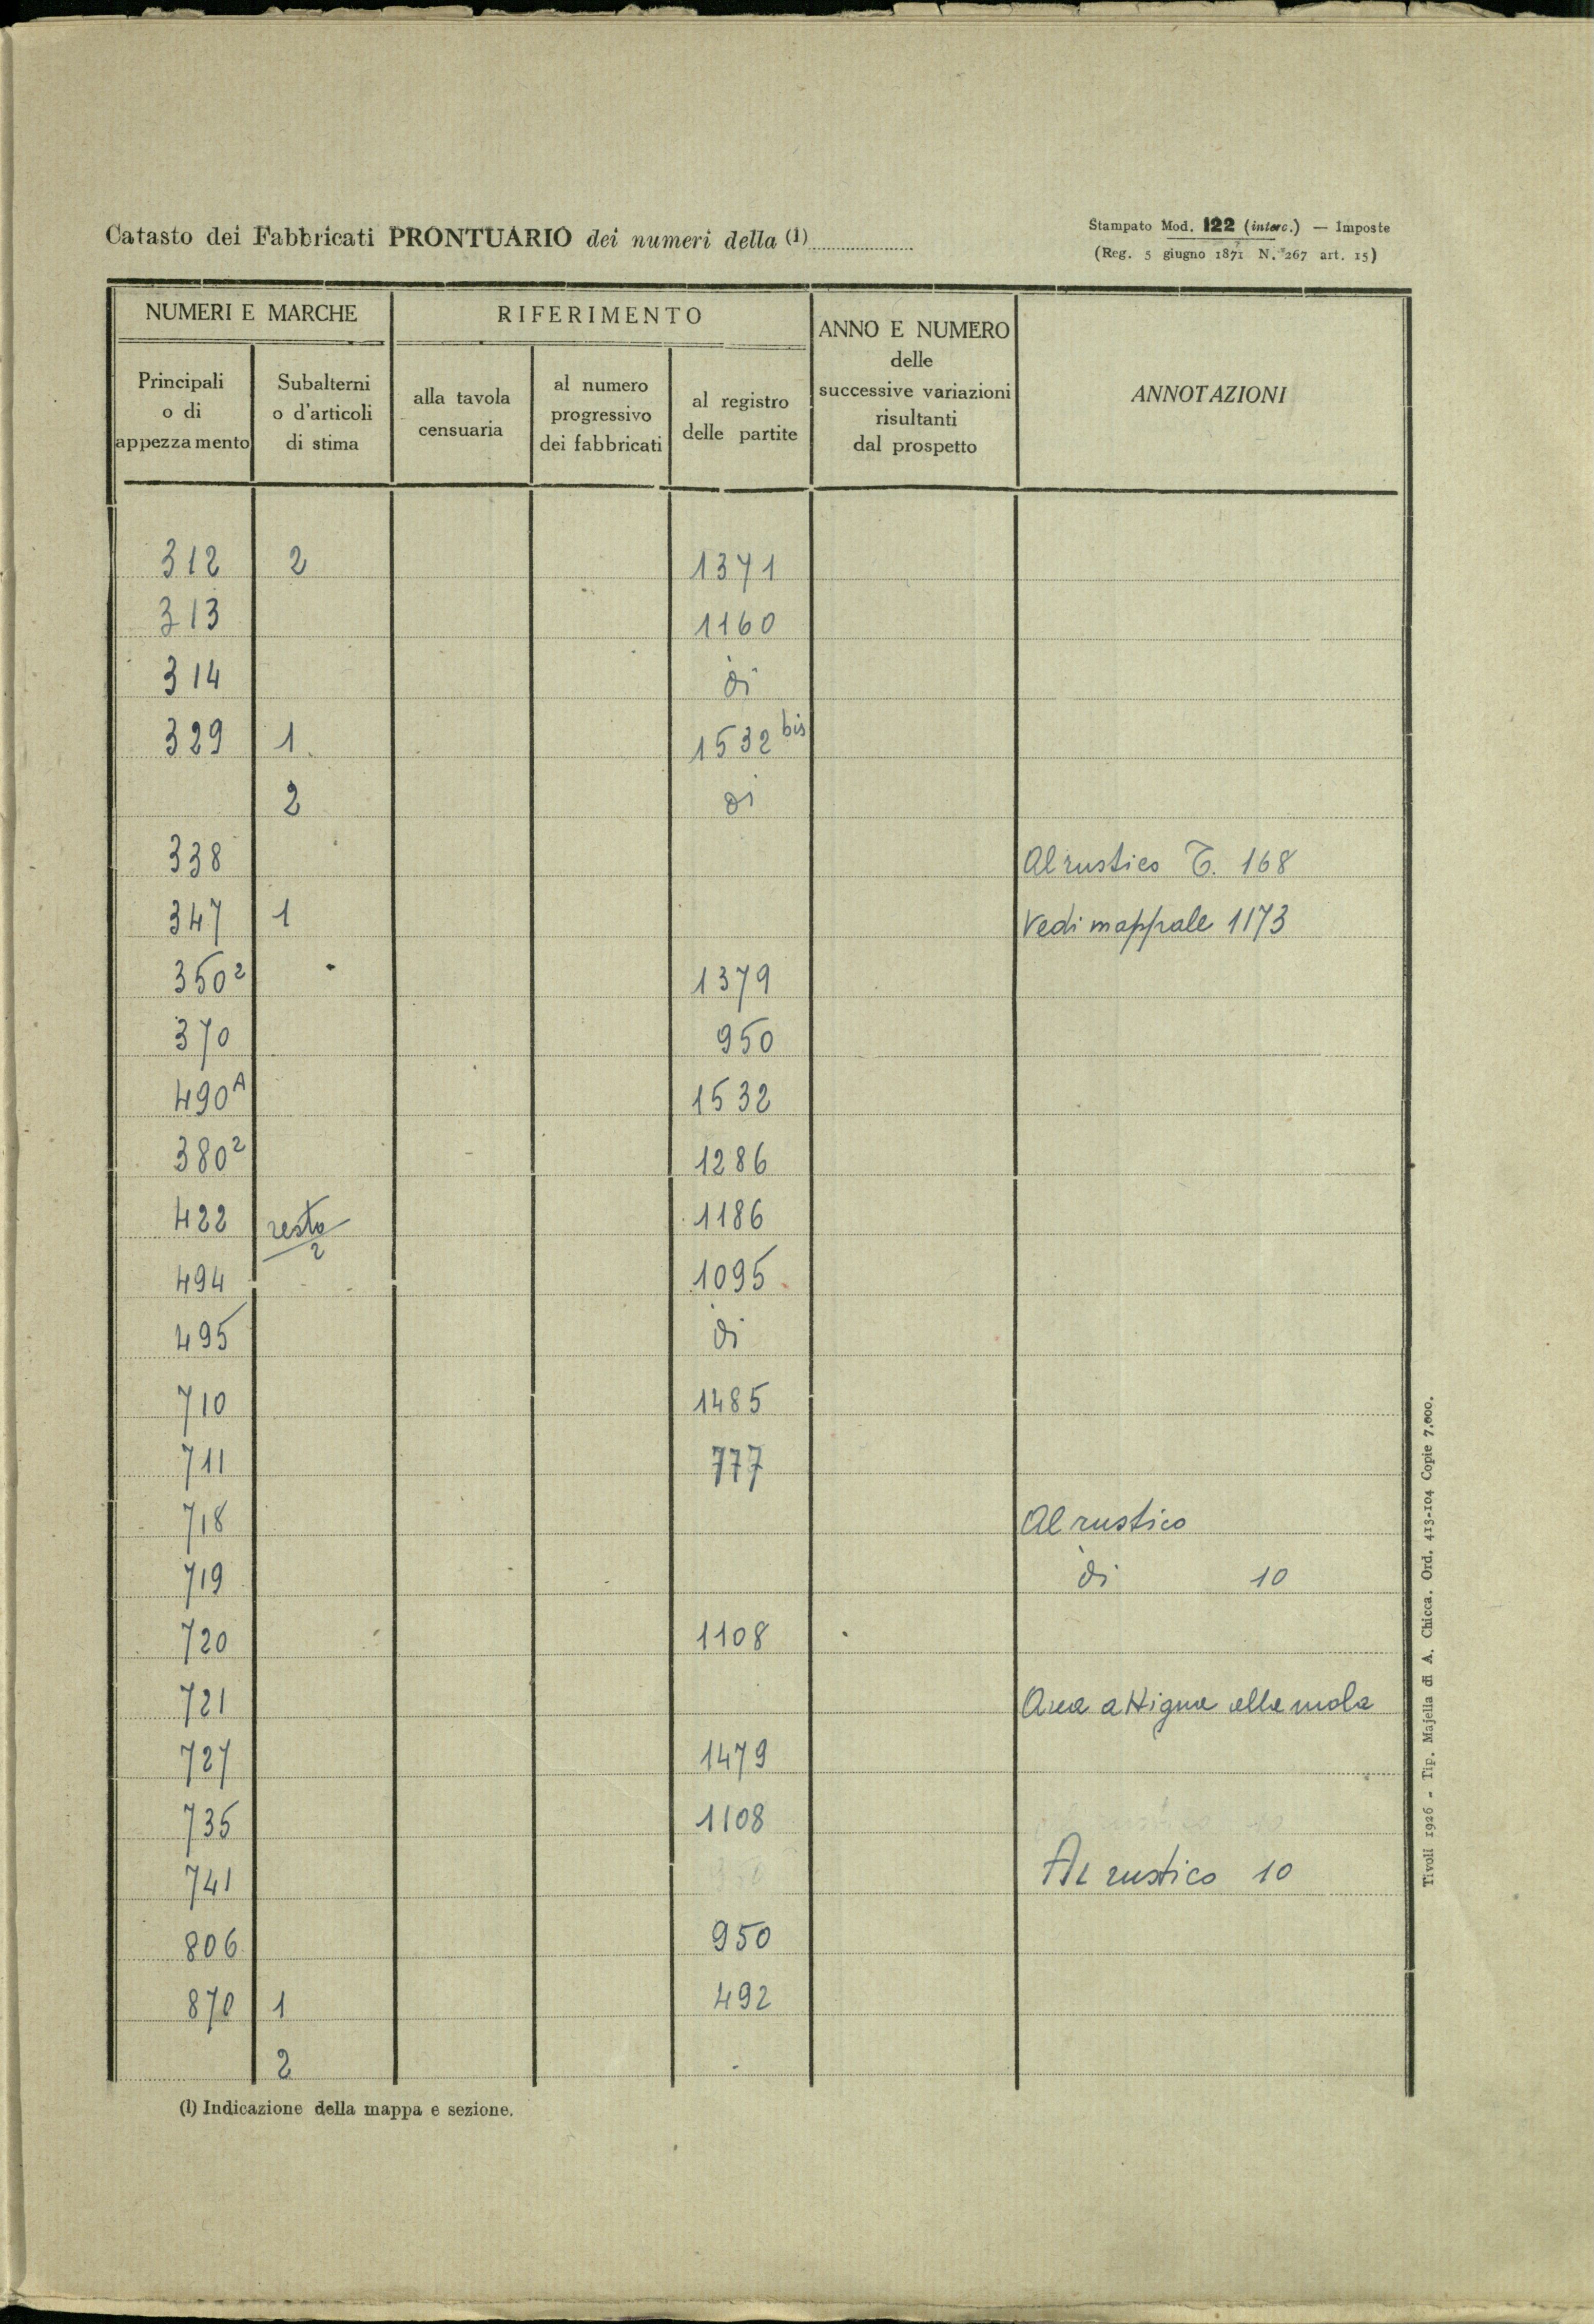 Catasto dei Fabbricati PRONTUARIO dei numeri della (1)
Stampato Mod. 122 (interc.) — Imposte
(Reg. 5 giugno 1871 N. 267 art. 15)
NUMERI E MARCHE
RIFERIMENTO
ANNO E NUMERO
delle
successive variazioni
risultanti
dal prospetto
ANNOTAZIONI
Principali
o di
appezzamento
Subalterni
o d'articoli
di stima
alla tavola
censuaria
al numero
progressivo
dei fabbricati
al registro
delle partite
312 2 1371
313 1160
314 di
329 1 1532 bis
2 di
338 Al rustico T. 168
347 1 Vedi mappale 1173
350² 1379
370 950
490ᴬ 1532
380² 1286
422 resto/2 1186
494 1095
495 di
710 1485
711 777
718 Al rustico
719 di 10
720 1108
721 Area attigua alla mola
727 1479
735 1108
741 Al rustico 10
806 950
870 1 492
2
(1) Indicazione della mappa e sezione.
Tivoli 1926 - Tip. Majella di A. Chicca. Ord. 413-104 Copie 7.000.